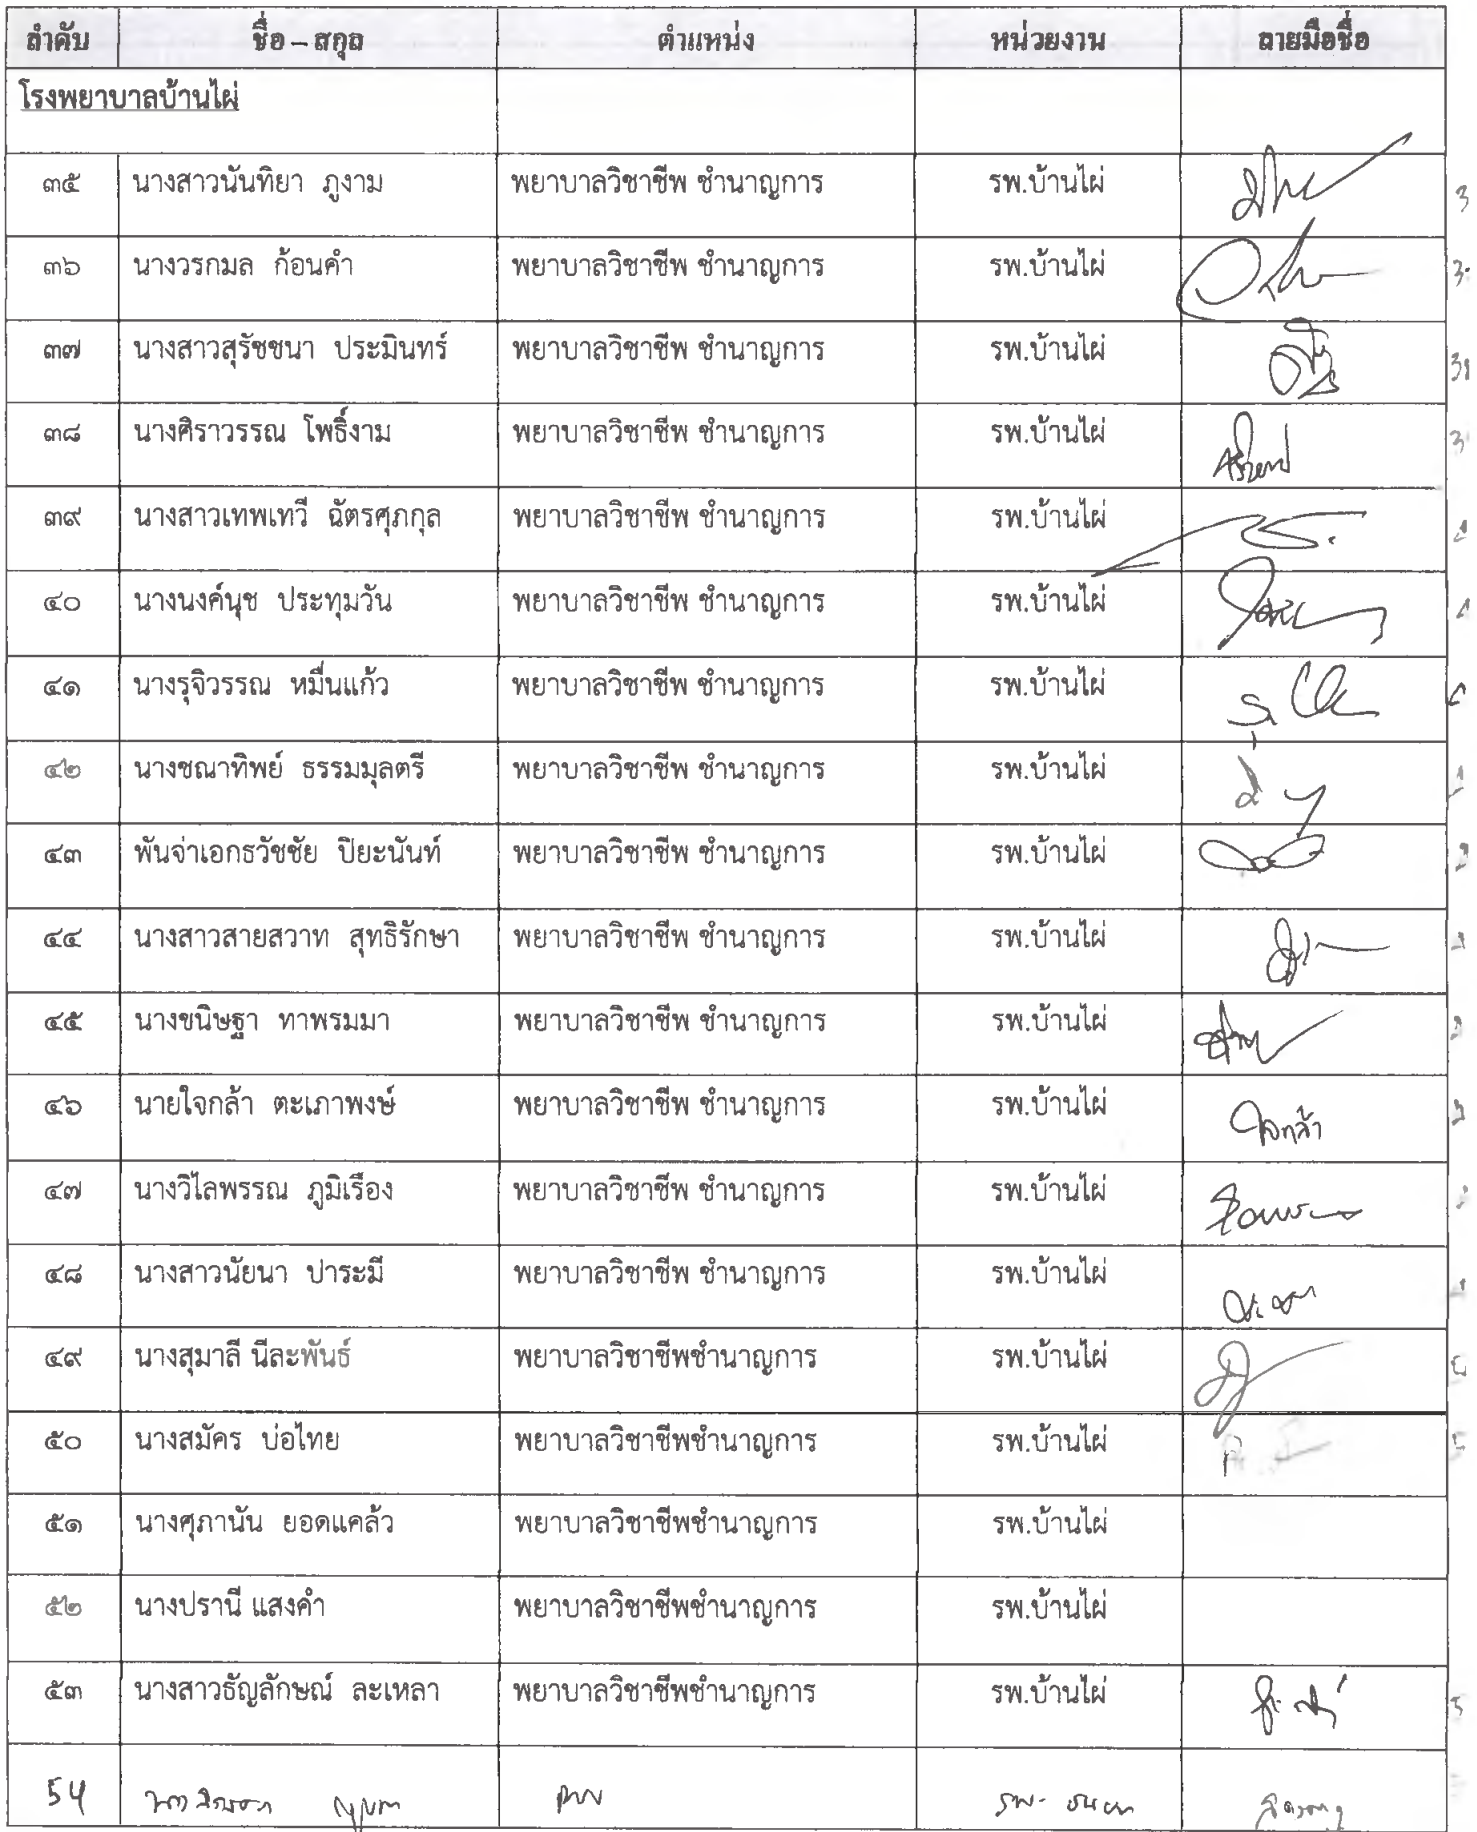 ลำดับ ชื่อ – สกุล ตำแหน่ง หน่วยงาน ลายมือชื่อ
โรงพยาบาลบ้านไผ่
๓๕ นางสาวนันทิยา ภูงาม พยาบาลวิชาชีพ ชำนาญการ รพ.บ้านไผ่
๓๖ นางวรกมล ก้อนคำ พยาบาลวิชาชีพ ชำนาญการ รพ.บ้านไผ่
๓๗ นางสาวสุรัชชนา ประมินทร์ พยาบาลวิชาชีพ ชำนาญการ รพ.บ้านไผ่
๓๘ นางศิราวรรณ โพธิ์งาม พยาบาลวิชาชีพ ชำนาญการ รพ.บ้านไผ่
๓๙ นางสาวเทพเทวี ฉัตรศุภกุล พยาบาลวิชาชีพ ชำนาญการ รพ.บ้านไผ่
๔๐ นางนงค์นุช ประทุมวัน พยาบาลวิชาชีพ ชำนาญการ รพ.บ้านไผ่
๔๑ นางรุจิวรรณ หมื่นแก้ว พยาบาลวิชาชีพ ชำนาญการ รพ.บ้านไผ่
๔๒ นางชณาทิพย์ ธรรมมุลตรี พยาบาลวิชาชีพ ชำนาญการ รพ.บ้านไผ่
๔๓ พันจ่าเอกธวัชชัย ปิยะนันท์ พยาบาลวิชาชีพ ชำนาญการ รพ.บ้านไผ่
๔๔ นางสาวสายสวาท สุทธิรักษา พยาบาลวิชาชีพ ชำนาญการ รพ.บ้านไผ่
๔๕ นางขนิษฐา ทาพรมมา พยาบาลวิชาชีพ ชำนาญการ รพ.บ้านไผ่
๔๖ นายใจกล้า ตะเภาพงษ์ พยาบาลวิชาชีพ ชำนาญการ รพ.บ้านไผ่ ใจกล้า
๔๗ นางวิไลพรรณ ภูมิเรือง พยาบาลวิชาชีพ ชำนาญการ รพ.บ้านไผ่
๔๘ นางสาวนัยนา ปาระมี พยาบาลวิชาชีพ ชำนาญการ รพ.บ้านไผ่
๔๙ นางสุมาลี นีละพันธ์ พยาบาลวิชาชีพชำนาญการ รพ.บ้านไผ่
๕๐ นางสมัคร บ่อไทย พยาบาลวิชาชีพชำนาญการ รพ.บ้านไผ่
๕๑ นางศุภานัน ยอดแคล้ว พยาบาลวิชาชีพชำนาญการ รพ.บ้านไผ่
๕๒ นางปรานี แสงคำ พยาบาลวิชาชีพชำนาญการ รพ.บ้านไผ่
๕๓ นางสาวธัญลักษณ์ ละเหลา พยาบาลวิชาชีพชำนาญการ รพ.บ้านไผ่
54